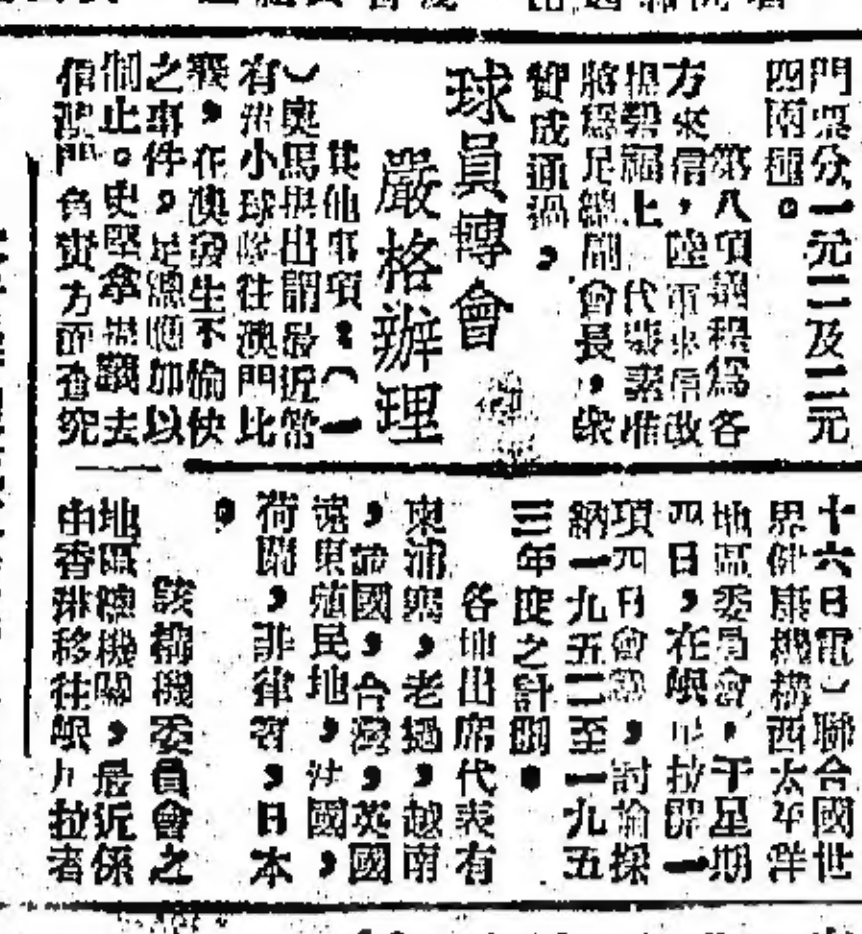 門票分一元二及二元
四兩種。
第八項議程爲各
方來信，陸軍來信改
提碧福上　代替素准
將爲足總副會長，衆
贊成通過，
球員轉會
嚴格辦理
其他事項：（一
）奧馬與出謂最近常
有　小球隊往澳門比
賽，在澳發生不愉快
之事件，足總應加以
制止。史堅拿提議去
信澳門負責方面查究
十六日電）聯合國世
界健康機構西太平洋
地區委員會，于星期
四日，在岷　拉舉一
項四日會議，討論採
納一九五二至一九五
三年度之計劃。
各地出席代表有
柬浦寨，老撾，越南
，　國，台灣，英國
遠東殖民地，法國，
荷蘭，菲律賓，日本
。
該機構委員會之
地區總機關，最近係
由香港移往岷　拉者